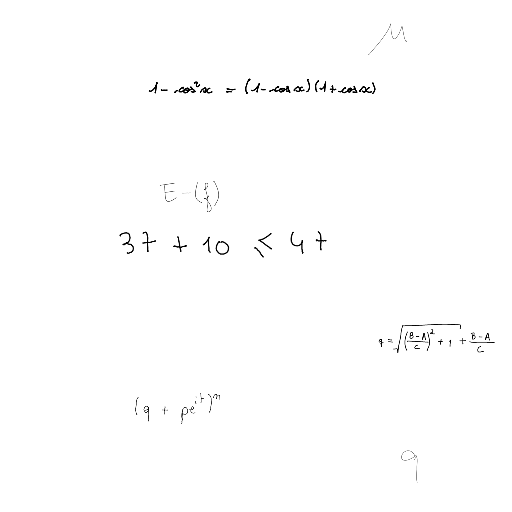 μ
1 - cos²x = (1 - cos x)(1 + cos x)
37 + 10 ≤ 47
q = √((B-A)/C)² + 1 + (B-A)/C
(q + pe^{it})^n
9